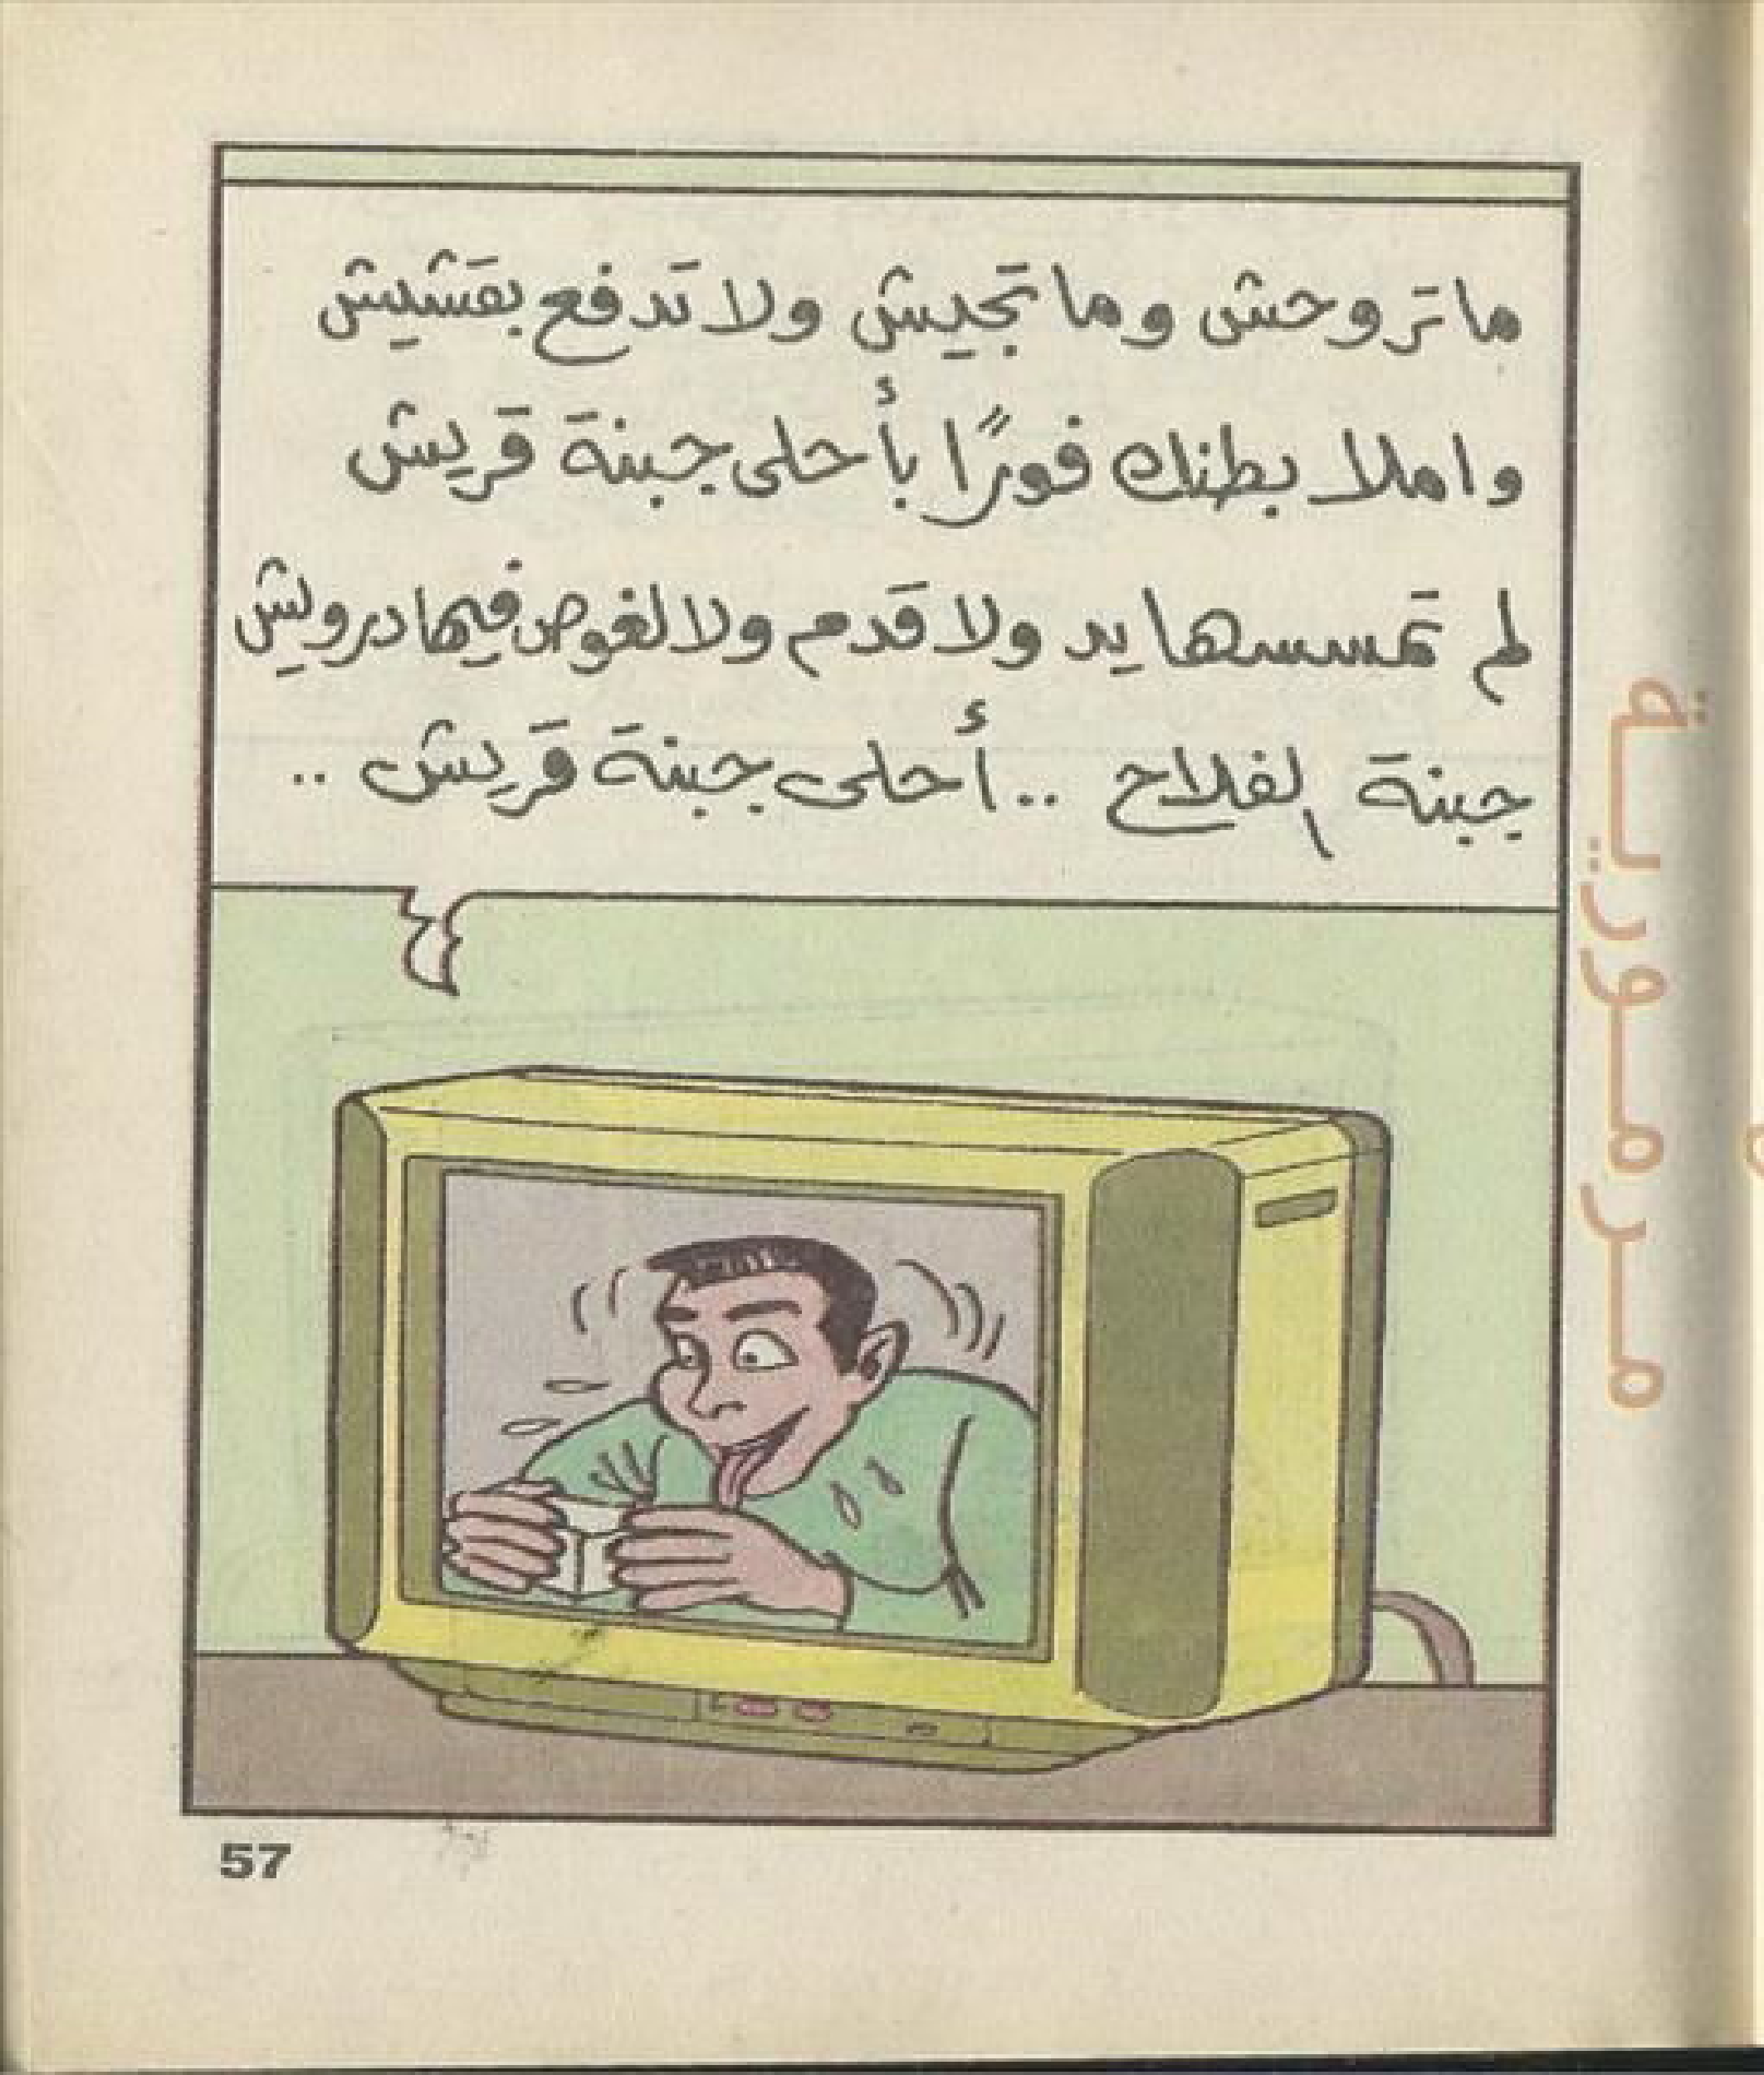 ماتروحش وماتجيش ولا تدفع بقشيش
واملا بطنك فورًا بأحلى جبنة قريش
لم تمسسها يد ولا قدم ولا لغوص فيها درويش
جبنة الفلاح .. أحلى جبنة قريش ..
مرمورية
57